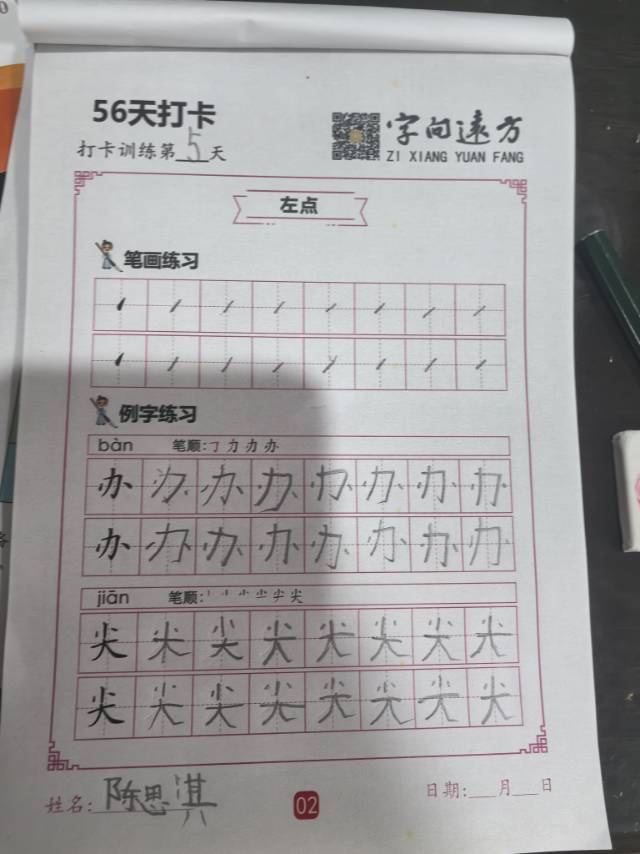 56天打卡
打卡训练第5天
字向远方
ZI XIANG YUAN FANG
左点
笔画练习
例字练习
bàn 笔顺:丁力办办
办办办办办办办办
办办办办办办办办
jiān 笔顺:
尖尖尖尖尖尖尖尖
尖尖尖尖尖尖尖尖
姓名:陈思淇
02
日期:___月___日